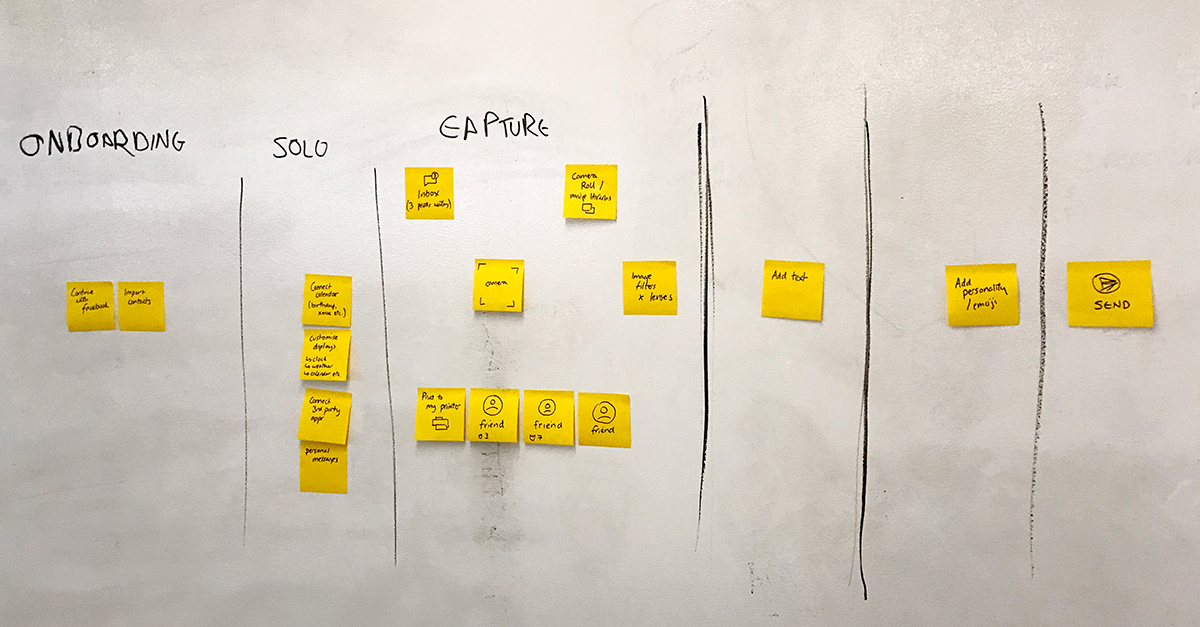 ONBOARDING
SOLO
CAPTURE
Continue
with
facebook
Import
contacts
Connect
calendar
(birthday,
xmas etc.)
Customise
displays
↳ clock
↳ weather
↳ calendar etc
Connect
3rd party
apps
personal
messages
Inbox
(3 photos waiting)
Camera
Roll /
libraries
camera
Image
filter
x lenses
Print to
my printer
friend
3
friend
7
friend
Add text
Add
personality
/emoji
SEND